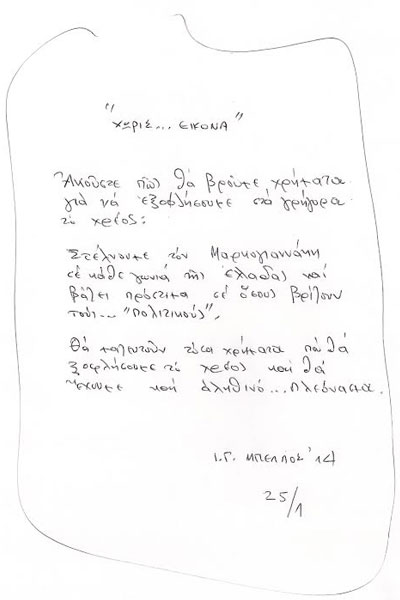 "ΧΩΡΙΣ... ΕΙΚΟΝΑ"
Ἀκοῦστε πῶς θά βροῦμε χρήματα
γιά νά ἐξοφλήσουμε στά γρήγορα
τό χρέος:
Στέλνουμε τόν Μαρκογιαννάκη
σέ κάθε γωνιά τῆς ἑλλάδας καί
βάζει πρόστιμα σέ ὅσους βρίζουν
τούς... "Πολιτικούς".
Θά μαζευτοῦν τόσα χρήματα πού θά
ξοφλήσουμε τό χρέος καί θά
ἔχουμε καί ἀληθινό... πλεόνασμα.
Ι.Γ. ΜΠΕΛΛΟΣ '14
25/1